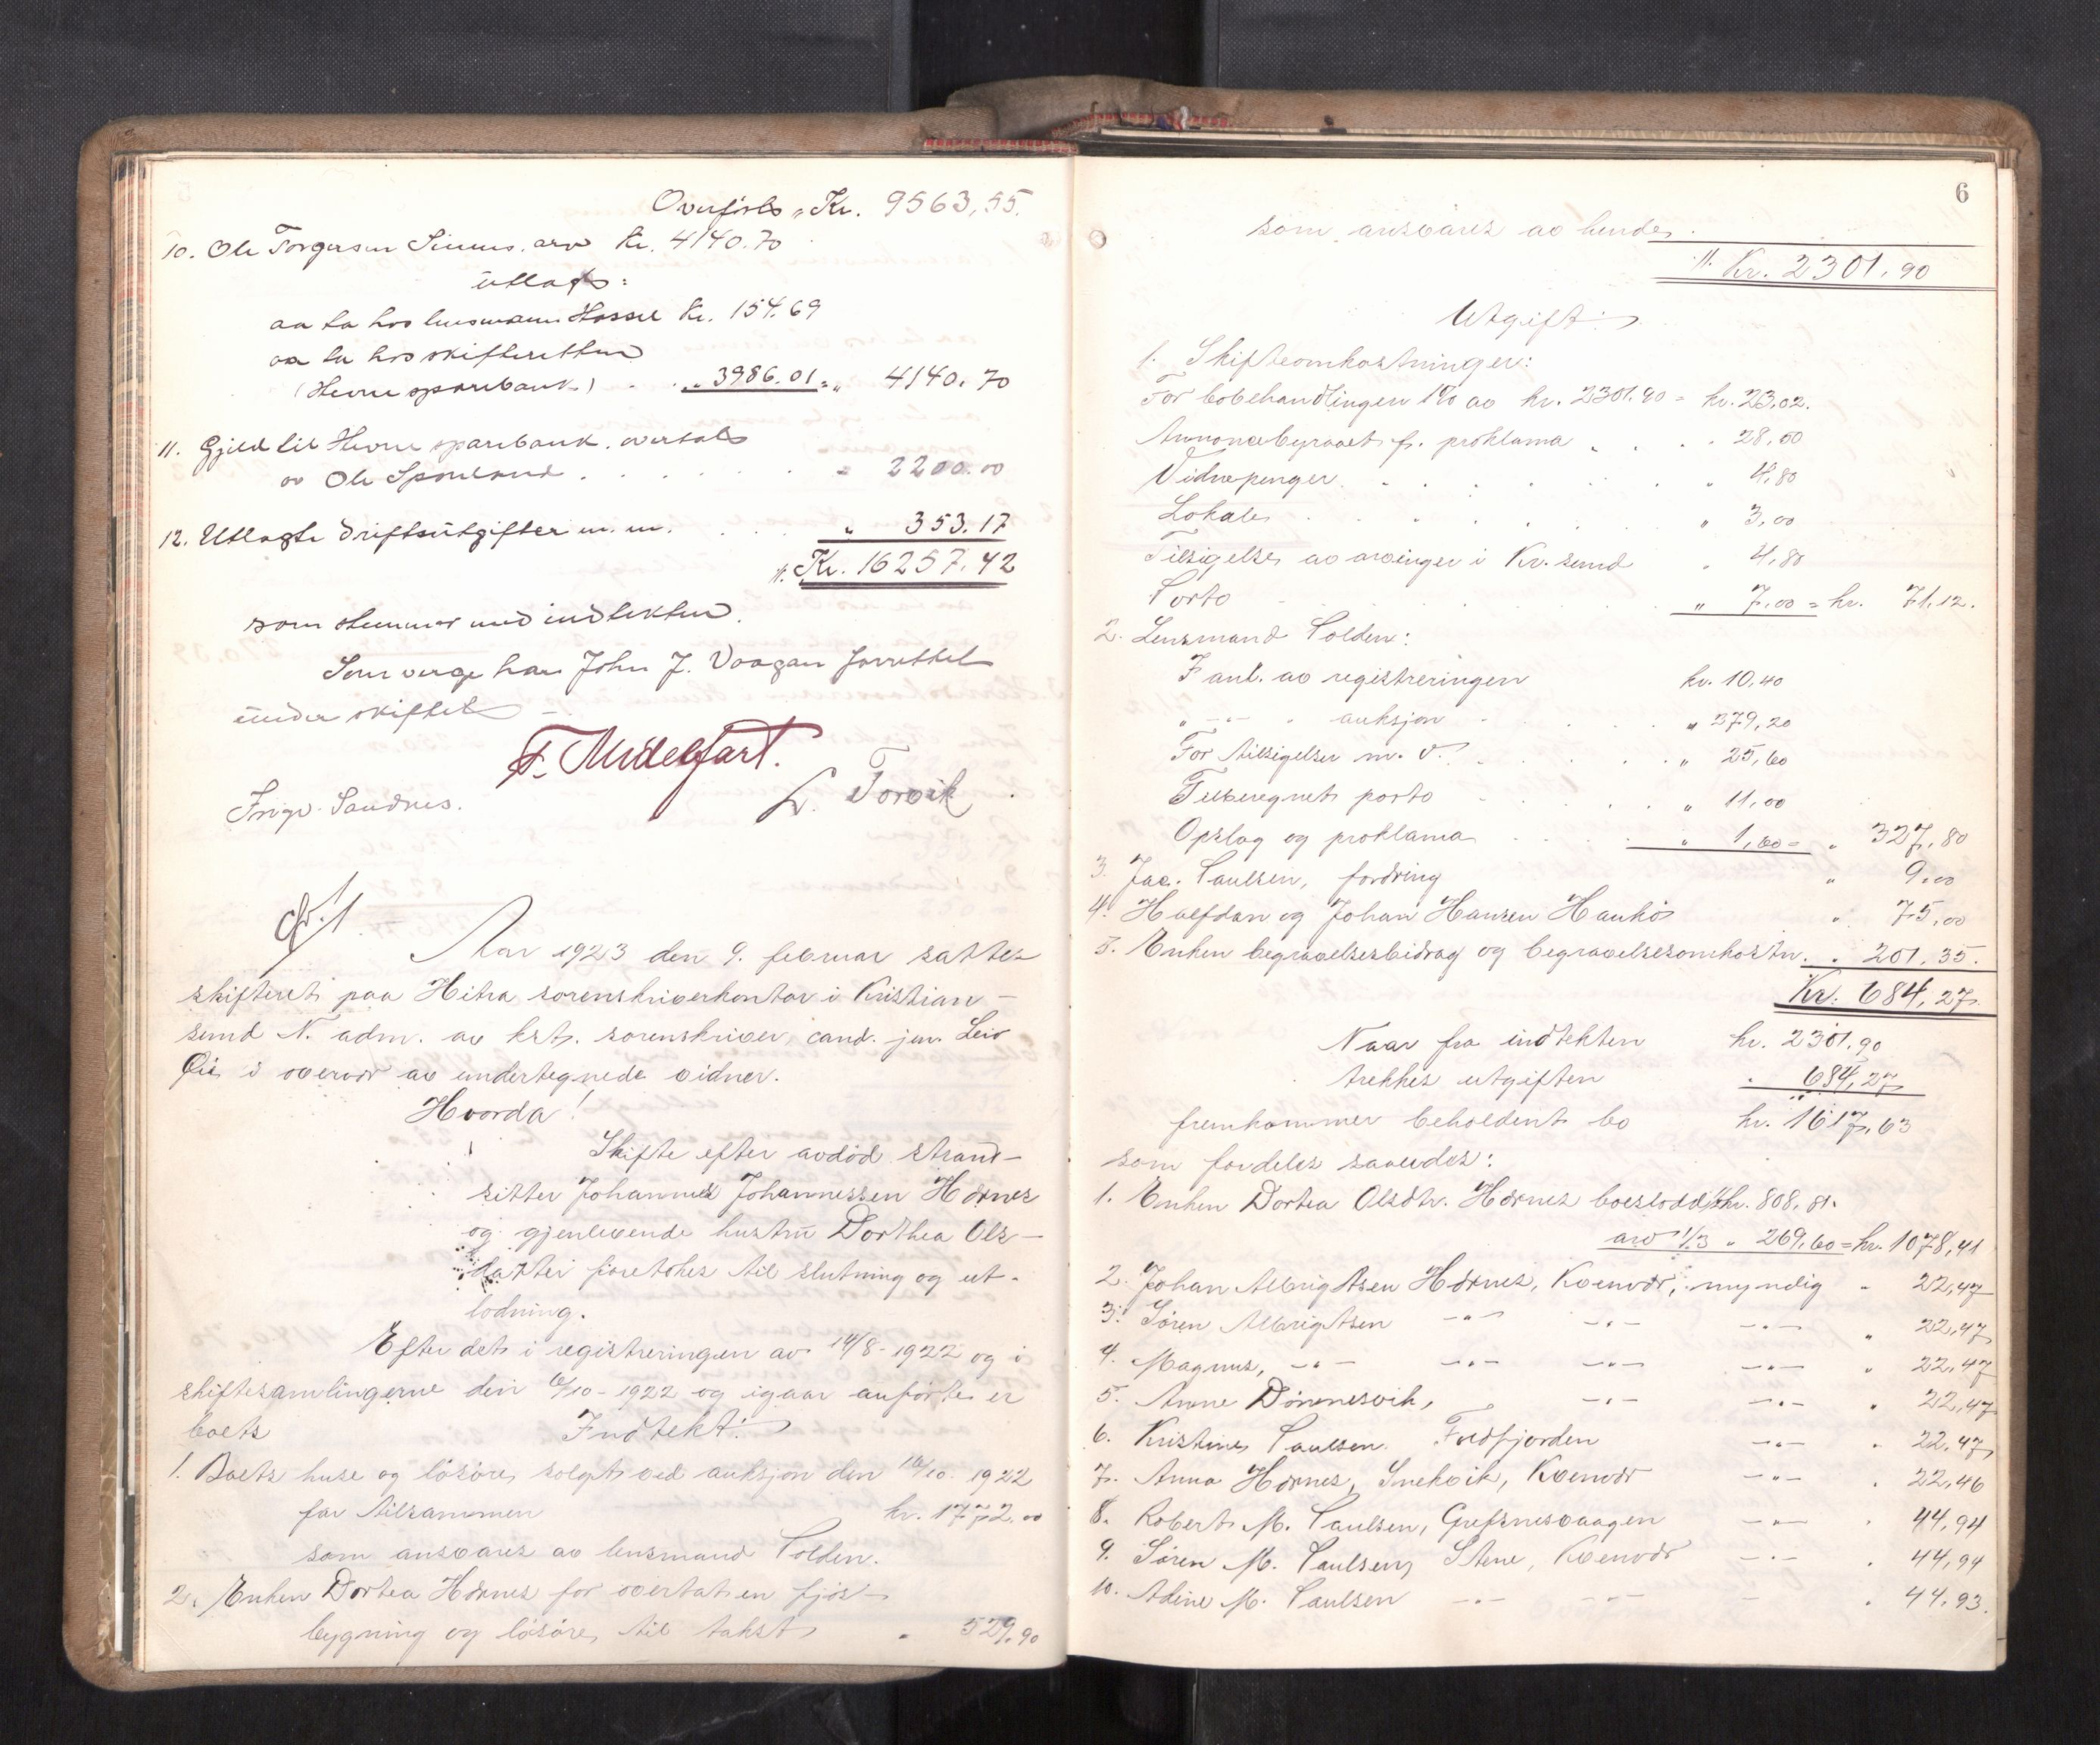 Overføres Kr. 9563,55.
10. Ole Torgersen arv Kr. 4140.70
utlagt:
aa ta hos lensmann Hassel Kr. 154.69
aa ta hos skifteretten
(Hevne sparebank) . . „ 3986.01 = „ 4140.70
11. Gjeld til Hevne sparebank, overtat
av Ole . . . . . „ 2200.00
12. Utlagte driftsutgifter m. m. . . . „ 353.17
Kr. 16257.42
som stemmer med indtekten.
Som verge har John J. Vaagan forrettet
under skiftet
F. Midelfart.
Ingv. Sandnes. L. Torvik
Aar 1923 den 9. februar sattes
skifteret paa Hitra sorenskriverkontor i Kristian-
sund N. adm. av kst. sorenskriver, cand. jur. Leiv
Øie i overvær av undertegnede vidner.
Hvorda!
Skifte efter avdød strand-
sitter Johannes Johannessen Hornes
og gjenlevende hustru Dorthea Ols-
datter foretokes til slutning og ut-
lodning.
Efter det i registreringen av 14/8-1922 og i
skiftesamlingerne den 6/10-1922 og igaar anførte er
boets Indtekt:
1. Boets huse og løsøre solgt ved auksjon den 16/10. 1922
for tilsammen kr. 1772.00
som ansvares av lensmand Polden.
2. Enken Dortea Hornes for overtat en fjøs-
bygning og løsøre, til takst „ 529.90
6
som ansvares av hende.
Kr. 2301.90
Utgift:
1. Skifteomkostninger:
For bobehandlingen 1% av kr. 2301.90 = kr. 23.02.
Annoncebyraaet f. proklama „ . . . 28,00
Vidnepenger . . . . . . „ 4,80
Lokale . . . . . . „ 3,00
Tilsigelse av arvinger i Kr.sund „ 4,80
Porto . . . . „ 7,00 = kr. 71,12.
2. Lensmand Polden:
F anl. av registreringen kr. 10,40
„ -„- „ auksjon . . . . „ 279,20
For tilsigelser m. v. . . . . „ 25,60
Tilberegnet porto . . . . „ 11,00
Opslag og proklama . . . „ 1,60 = „ 327,80
3. Jac. Paulsen, fordring „ 9.00
4. Halfdan og Johan Hansen Haukø „ 75,00
5. Enken begravelsesbidrag og begravelsesomkostn. „ 201,35.
Kr. 684,27
Naar fra indtekten kr. 2301,90
trekkes utgiften „ 684,27
fremkommer beholdent bo kr. 1617,63
som fordeles saaledes:
1. Enken Dortea Olsdtr. Hornes boeslodd kr. 808,81.
arv 1/3 „ 269,60 = kr. 1078,41
2. Johan Albrigtsen Hornes, Kvenvær, myndig „ 22,47
3. Søren Albrigtsen -„- -„- -„- „ 22,47
4. Magnus, -„- -„- -„- -„- „ 22,47
5. Anne Dønnesvik, -„- -„- „ 22,47
6. Kristine Paulsen. -„- „ 22,47
7. Anna Hornes, Snekvik, Kvenvær -„- „ 22,46
8. Robert M. Paulsen, Grefsnesvaagen -„- „ 44,94
9. Søren M. Paulsen, Stene, Kvenvær -„- „ 44,94
10. Adine M. Paulsen -„- -„- - „ 44,93.